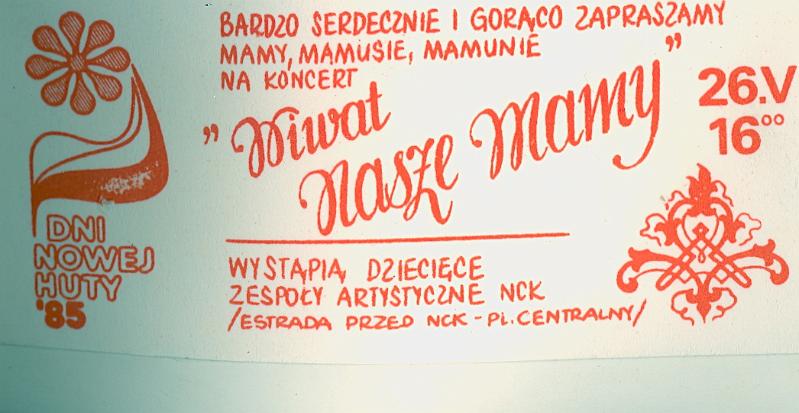 BARDZO SERDECZNIE I GORĄCO ZAPRASZAMY
MAMY, MAMUSIE, MAMUNIE
NA KONCERT
„Wiwat
Nasze Mamy”
26.V
16⁰⁰
WYSTĄPIĄ DZIECIĘCE
ZESPOŁY ARTYSTYCZNE NCK
/ESTRADA PRZED NCK - PL. CENTRALNY/
DNI
NOWEJ
HUTY
'85